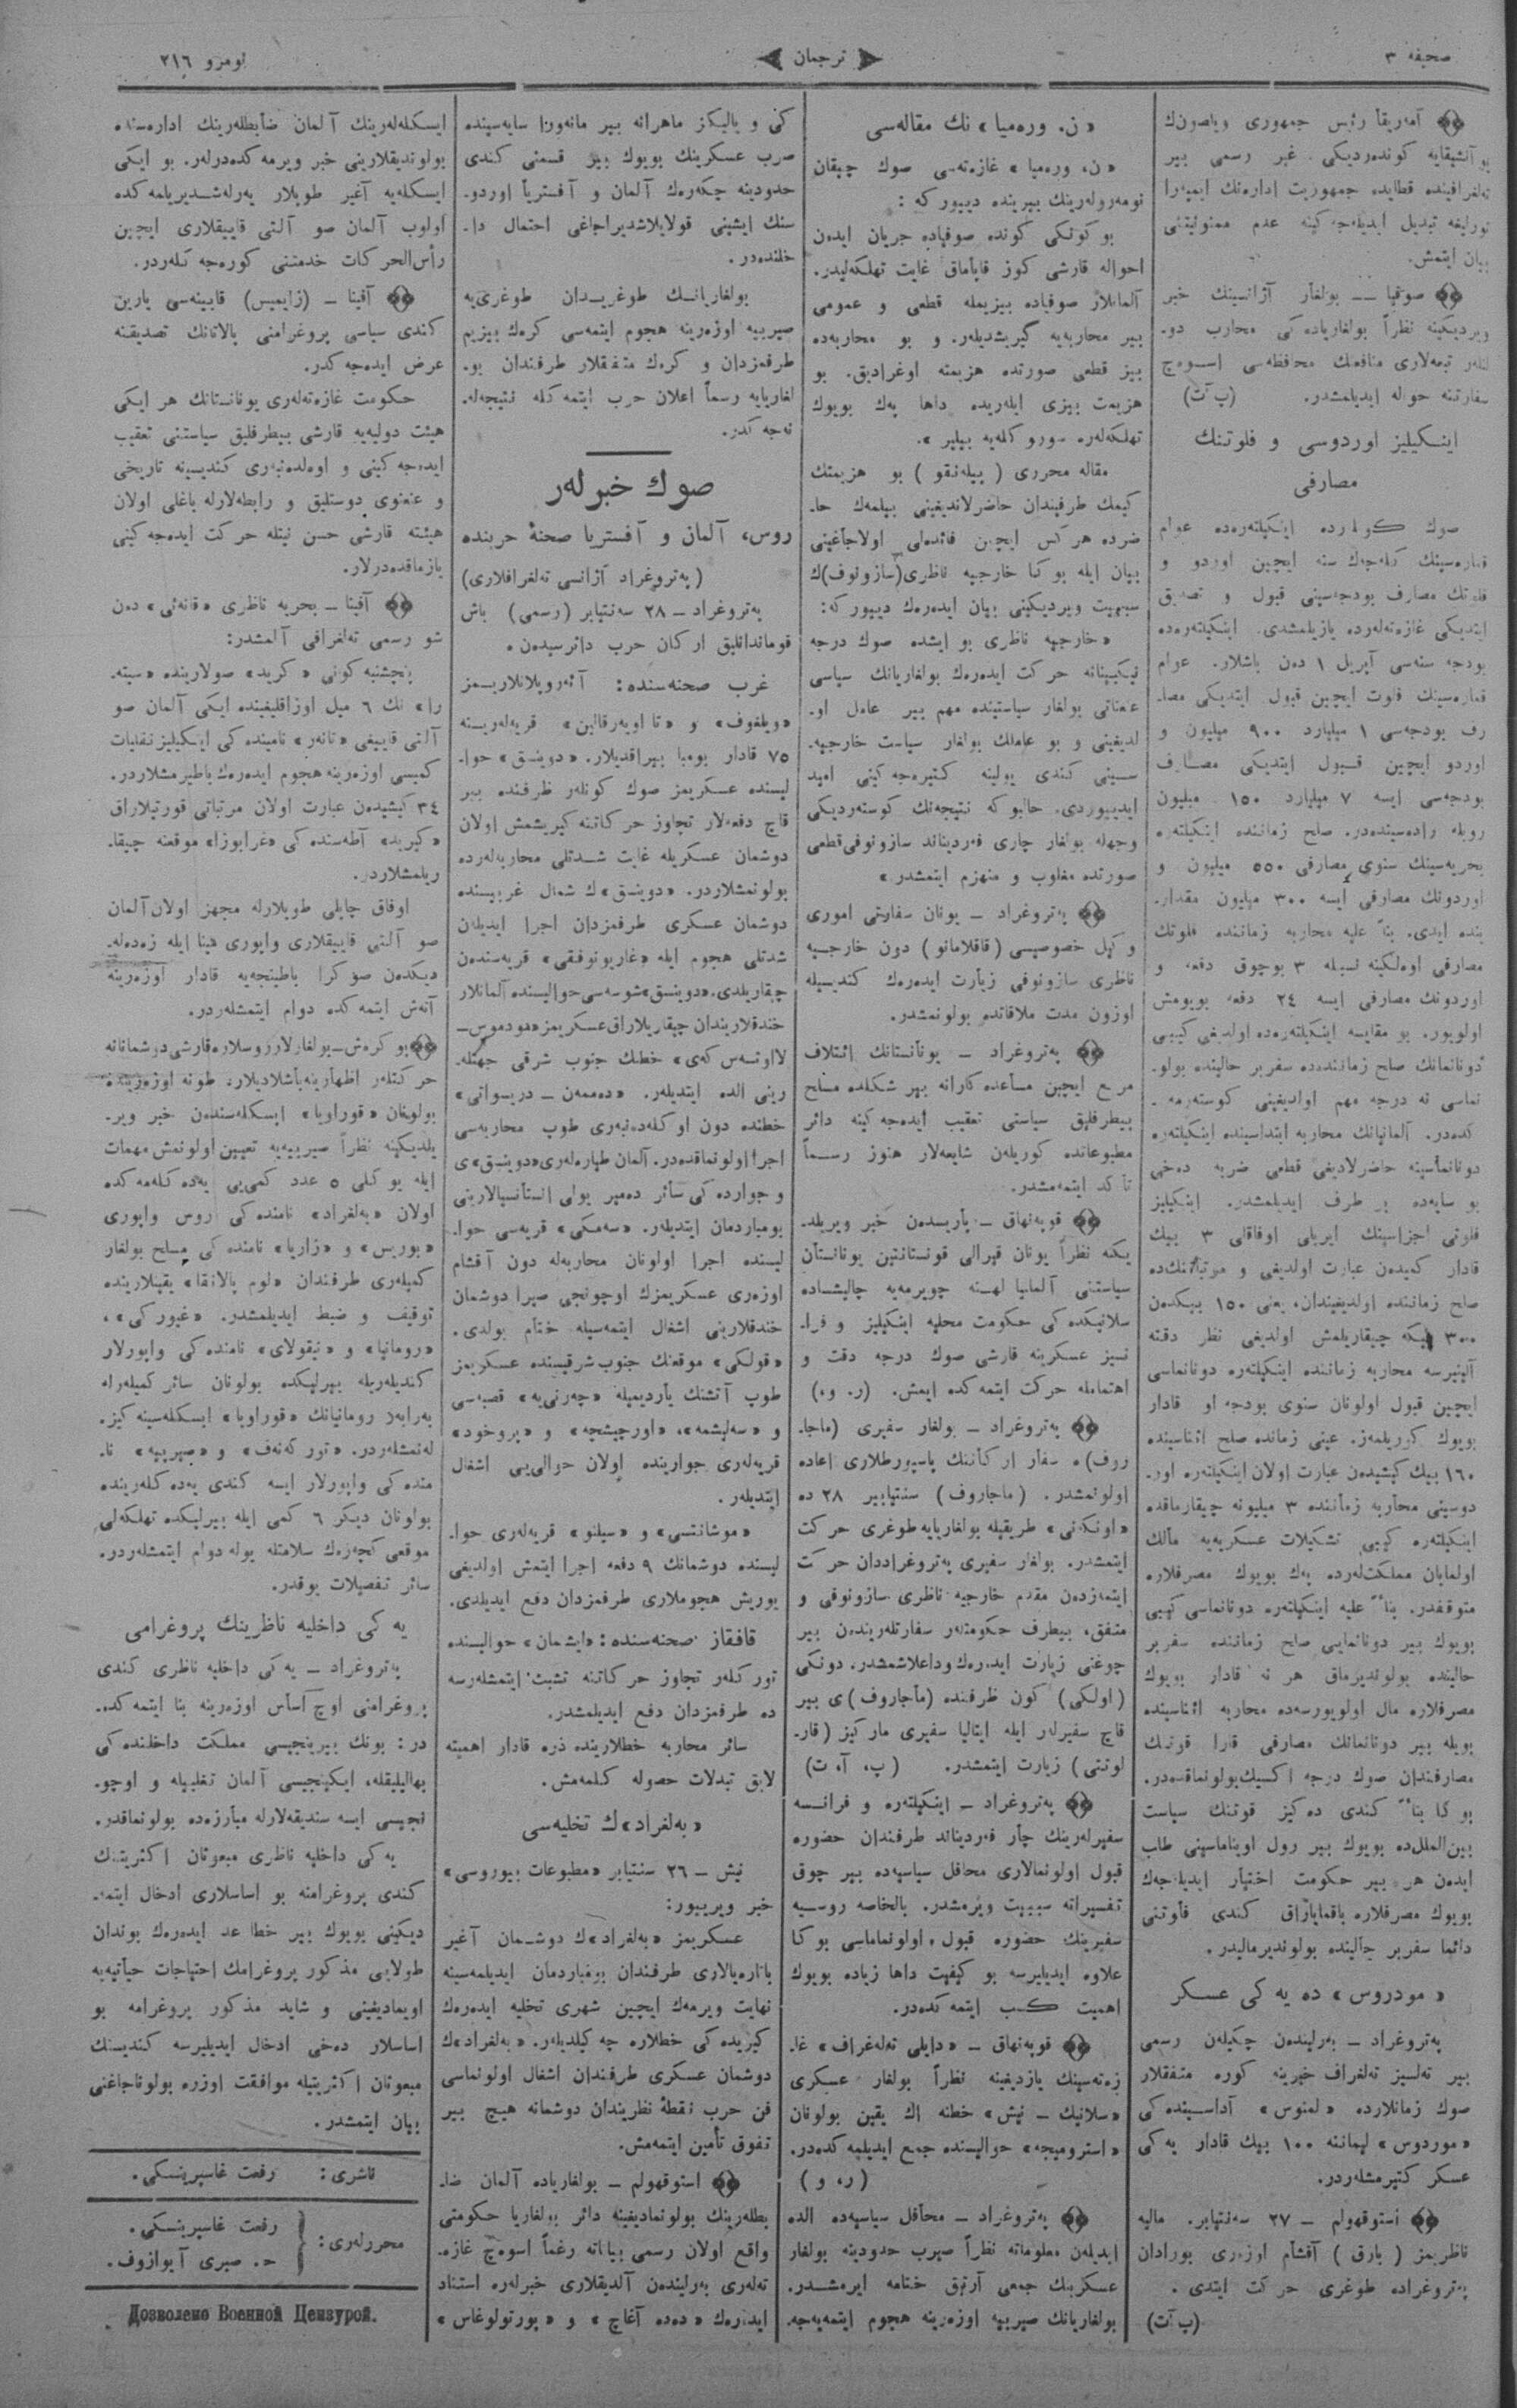 صحیفه ٣
ترجمان
نومرو ٢١٦
آمەریقا رئیس جمهوری ویلصونك
بو آنشیقایه كوندەردیكی غیر رسمی بیر
تەلغرافیندە قطایدە جمهوریت ادارەنك ایمپەرا
تورلیغه تبدیل ایدیلەجەكینه عدم ممنونیتنی
بیان ایتمش.
صوفیا — بولغار آژانسینك خبر
ویردیكینه نظراً بولغاریادە كی محارب دو-
لتلەر تبعەلاری منافعنك محافظەسی اسوەچ
سفارتنه حواله ایدیلمشدر. (پ آت)
اینكیلیز اوردوسی و فلوتنك
مصارفی
صوك كونلردە اینكیلتەرەدە عوام
قمارەسینك كلەجەك سنه ایچین اوردو و
فلوتك مصارف بودجەسینی قبول و تصدیق
ایتدیكی غازەتەلەردە یازیلمشدی. اینكیلتەرەدە
بودجه سنەسی آپریل ١ دەن باشلار. عوام
قمارەسینك فلوت ایچین قبول ایتدیكی مصا-
رف بودجەسی ١ میلیارد ٩٠٠ میلیون و
اوردو ایچین قبول ایتدیكی مصارف
بودجەسی ایسه ٧ میلیارد ١٥٠ میلیون
روبله رادەسیندەدر. صلح زماننده اینكیلتەرە
بحریەسینك سنوی مصارفی ٥٥٠ میلیون و
اوردونك مصارفی ایسه ٣٠٠ میلیون مقدار-
یندە ایدی. بناً علیه محاربه زماننده فلوتك
مصارفی اوەلكینه نسبله ٣ بوچوق دفعه و
اوردونك مصارفی ایسه ٢٤ دفعه بویومش
اولویور. بو مقایسه اینكیلتەرەدە اولدیغی كیبی
دونانمانك صلح زماننددە سفربر حالینده بولو-
نماسی نه درجه مهم اولدیغینی كوستەرمە-
كدەدر. آلمانیانك محاربه ابتداسینده اینكیلتەرە
دونانماسینه حاضرلادیغی قطعی ضربه دەخی
بو سایەدە بر طرف ایدیلمشدر. اینكیلیز
فلوتی اجزاسینك ایریلی اوفاقلی ٣ بیك
قادار كمیدەن عبارت اولدیغی و مرتباتنكدە
صلح زماننده اولدیغیندان، یعنی ١٥٠ بیكدەن
٣٠٠ بیكه چیقاریلمش اولدیغی نظر دقته
آلینیرسه محاربه زماننده اینكیلتەرە دونانماسی
ایچین قبول اولونان سنوی بودجه او قادار
بویوك كوریلمەز. عینی زماندە صلح اثناسینده
١٦٠ بیك كیشیدەن عبارت اولان اینكیلتەرە اور-
دوسینی محاربه زماننده ٣ میلیونه چیقارماقدە
اینكیلتەرە كیبی تشكیلات عسكریەیه مالك
اولمایان مملكتلەردە پەك بویوك مصرفلارە
متوقفدر. بناً علیه اینكیلتەرە دونانماسی كیبی
بویوك بیر دونانمایی صلح زماننده سفربر
حالینده بولوندیرماق هر نه قادار بویوك
مصرفلارە مال اولویورسەدە محاربه اثناسینده
بویله بیر دونانمانك مصارفی قارا قوتنك
مصارفندان صوك درجه اكسیك بولونماقدەدر.
بو كا بناً كندی دەكیز قوتنك سیاست
بین‌الملل‌دە بویوك بیر رول اویناماسینی طلب
ایدەن هر بیر حكومت اختیار ایدیلەجەك
بویوك مصرفلارە باقمایاراق كندی فلوتنی
دائما سفربر حالینده بولوندیرمالیدر.
«مودروس» دە یەكی عسكر
پەتروغراد — بەرلیندەن چكیلەن رسمی
بیر تەلسیز تەلغراف خبرینه كورە متفقلار
صوك زمانلاردە «لمنوس» آداسیندەكی
«موردوس» لیماننه ١٠٠ بیك قادار یەكی
عسكر كتیرمشلەردر.
استوقهولم — ٢٧ سەنتیابر. مالیه
ناظریمز (بارق) آقشام اوزەری بورادان
پەتروغرادە طوغری حركت ایتدی.
(پ آت)
«ن. ورەمیا» نك مقالەسی
«ن، ورەمیا» غازەتەسی صوك چیقان
نومەرولەرینك بیریندە دییور كه:
بو كونكی كوندە صوفیادە جریان ایدەن
احواله قارشی كوز قاپاماق غایت تهلكەلیدر.
آلمانلار صوفیادە بیزیمله قطعی و عمومی
بیر محاربەیه گیریشدیلەر. و بو محاربەدە
بیز قطعی صورتدە هزیمته اوغرادیق. بو
هزیمت بیزی ایلەریدە داها پەك بویوك
تهلكەلەرە سوروكلەیه بیلیر».
مقاله محرری (پیلەنقو) بو هزیمتك
كیمك طرفیندان حاضرلاندیغینی بیلمەك حا-
ضردە هر كس ایچین فائدەلی اولاجاغینی
بیان ایله بو كا خارجیه ناظری (سازونوف)ك
سببیت ویردیكینی بیان ایدەرەك دییور كه:
«خارجیه ناظری بو ایشدە صوك درجه
نیكبینانه حركت ایدەرەك بولغاریانك سیاسی
عنعناتی بولغار سیاستیندە مهم بیر عامل او-
لدیغینی و بو عاملك بولغار سیاست خارجیه-
سینی كندی یولینه كتیرەجەكینی امید
ایدییوردی. حالبو كه نتیجەنك كوستەردیكی
وجهله بولغار چاری فەردیناند سازونوفی قطعی
صورتدە مغلوب و منهزم ایتمشدر»
پەتروغراد — یونان سفارتی اموری
وكیل خصوصیسی (قاقلامانو) دون خارجیه
ناظری سازونوفی زیارت ایدەرەك كندیسیله
اوزون مدت ملاقاتدە بولونمشدر.
پەتروغراد — یونانستانك ائتلاف
مربع ایچین مساعدەكارانه بیر شكلدە مسلح
بیطرفلیق سیاستی تعقیب ایدەجەكینه دائر
مطبوعاتدە كوریلەن شایعەلار هنوز رسماً
تأكد ایتمەمشدر.
قوپەنهاق — پاریسدەن خبر ویریلد-
یكنه نظراً یونان قیرالی قونستانتین یونانستان
سیاستنی آلمانیا لهینه چویرمەیه چالیشسادە
سلانیكدەكی حكومت محلیه اینكیلیز و فرا-
نسیز عسكرینه قارشی صوك درجه دقت و
اهتمامله حركت ایتمەكدە ایمش. (ر. و،)
پەتروغراد — بولغار سفیری (ماجا-
روف)ە سفارت اركاننك پاسپورطلاری اعادە
اولونمشدر. (ماجاروف) سنتیابیر ٢٨ دە
«اونكنی» طریقیله بولغاریایه طوغری حركت
ایتمشدر. بولغار سفیری پەتروغراددان حركت
ایتمەزدەن مقدم خارجیه ناظری سازونوفی و
متفق، بیطرف حكومتلەر سفارتلەریندەن بیر
چوغنی زیارت ایدەرەك وداعلاشمشدر. دونكی
(اولكی) كون ظرفندە (ماجاروف)ی بیر
قاچ سفیرلەر ایله ایتالیا سفیری ماركیز (قار-
لوتتی) زیارت ایتمشدر. (پ، آ، ت)
پەتروغراد — اینكیلتەرە و فرانسه
سفیرلەرینك چار فەردیناند طرفندان حضورە
قبول اولونمالاری محافل سیاسیەدە بیر چوق
تفسیراته سببیت ویرمشدر. بالخاصه روسیه
سفیرینك حضورە قبول اولونماماسی بو كا
علاوە ایدیلیرسه بو كیفیت داها زیادە بویوك
اهمیت كسب ایتمەكدەدر.
قوپەنهاق — «دایلی تەلەغراف» غا-
زەتەسینك یازدیغینه نظراً بولغار عسكری
«سلانیك — نیش» خطنه اك یقین بولونان
«استرومیجه» حوالیسندە جمع ایدیلمەكدەدر.
(ر، و)
پەتروغراد — محافل سیاسیەدە الدە
ایدیلەن معلوماته نظراً صیرب حدودینه بولغار
عسكرینك جمعی آرتیق ختامه ایرمشدر.
بولغاریانك صیربیه اوزەرینه هجوم ایتمەیەجە-
كی و یالیكز ماهرانه بیر مانەورا سایەسیندە
صرب عسكرینك بویوك بیر قسمنی كندی
حدودینه چكەرەك آلمان و آفستریا اوردو-
سنك ایشینی قولایلاشدیراجاغی احتمال دا-
خلندەدر.
بولغاریانك طوغریدان طوغرییه
صیربیه اوزەرینه هجوم ایتمەسی كرەك بیزیم
طرفمزدان و كرەك متفقلار طرفندان بو-
لغاریایه رسماً اعلان حرب ایتمەكله نتیجەلە-
نەجەكدر.
صوك خبرلەر
روس، آلمان و آفستریا صحنهٔ حربندە
(پەتروغراد آژانسی تەلغرافلاری)
پەتروغراد — ٢٨ سەنتیابر (رسمی) باش
قوماندانلیق اركان حرب دائرسیدەن.
غرب صحنەسندە: آئەروپلانلاریمز
«ویلغوف» و «تا اوبەرقالین» قریەلەرینه
٧٥ قادار بومبا بیراقدیلار. «دوینسق» حوا-
لیسندە عسكریمز صوك كونلەر ظرفندە بیر
قاچ دفعەلار تجاوز حركاتنه كیریشمش اولان
دوشمان عسكریله غایت شدتلی محاربەلەردە
بولونمشلاردر. «دوینسق»ك شمال غربیسندە
دوشمان عسكری طرفمزدان اجرا ایدیلەن
شدتلی هجوم ایله «غاربونوفقی» قریەسندەن
چیقاریلدی. «دوینسق» شوسەسی حوالیسندە آلمانلار
خندقلاریندان چیقاریلاراق عسكریمز «مودموس—
لااوتسەس كەی» خطنك جنوب شرقی جهتلە-
رینی الدە ایتدیلەر. «دەممەن — دریسواتی»
خطندە دون اوكلەدەنبەری طوپ محاربەسی
اجرا اولونماقدەدر. آلمان طیارەلەری «دوینسق»ی
و جواردەكی سائر دەمیر یولی استانسیالارینی
بومباردمان ایتدیلەر. «سەمكی» قریەسی حوا-
لیسندە اجرا اولونان محاربەلە دون آقشام
اوزەری عسكریمزك اوچونجی صیرا دوشمان
خندقلارینی اشغال ایتمەسیله ختام بولدی.
«قولكی» موقعنك جنوب شرقیسندە عسكریمز
طوپ آتشنك یاردیمیله «چەرنی‌یه» قصبەسی
و «سەلیشمه»، «اورچیشچه» و «پروخود»
قریەلەری جواریندە اولان حوالی‌یی اشغال
ایتدیلەر.
«موشانتسی» و «سیلنو» قریەلەری حوا-
لیسندە دوشمانك ٩ دفعه اجرا ایتمش اولدیغی
یوریش هجوملاری طرفمزدان دفع ایدیلدی.
قافقاز صحنەسندە: «ایشمان» حوالیسندە
توركلەر تجاوز حركاتنه تشبث ایتمشلەرسه
دە طرفمزدان دفع ایدیلمشدر.
سائر محاربه خطلاریندە ذرە قادار اهمیته
لایق تبدلات حصوله كلمەمش.
«بەلغراد»ك تخلیەسی
نیش — ٢٦ سنتیابر «مطبوعات بیوروسی»
خبر ویرییور:
عسكریمز «بەلغراد»ك دوشمان آغیر
باتارەیالاری طرفندان بومباردمان ایدیلمەسینه
نهایت ویرمەك ایچین شهری تخلیه ایدەرەك
كیریدەكی خطلارە چەكیلدیلەر. «بەلغراد»ك
دوشمان عسكری طرفندان اشغال اولونماسی
فن حرب نقطهٔ نظریندان دوشمانه هیچ بیر
تفوق تأمین ایتمەمش.
استوقهولم — بولغاریادە آلمان ضا-
بطلەرینك بولونمادیغینه دائر بولغاریا حكومتی
واقع اولان رسمی بیاناته رغماً اسوەچ غازە-
تەلەری بەرلیندەن آلدیقلاری خبرلەرە استناد
ایدەرەك «دەدە آغاچ» و «پورتولوغاس»
ایسكلەلەرینك آلمان ضابطلەرینك ادارەسندە
بولوندیقلارینی خبر ویرمەكدەدرلەر. بو ایكی
ایسكلەیه آغیر طوپلار یەرلەشدیریلمەكدە
اولوب آلمان صو آلتی قاییقلاری ایچین
رأس‌الحركات خدمتنی كورەجەكلەردر.
آفینا — (زایمیس) قابینەسی یارین
كندی سیاسی پروغرامنی پالاتانك تصدیقنه
عرض ایدەجەكدر.
حكومت غازەتەلەری یونانستانك هر ایكی
هیئت دولیەیه قارشی بیطرفلیق سیاستنی تعقیب
ایدەجەكینی و اوەلدەنبەری كندیسینه تاریخی
و عنعنوی دوستلیق و رابطەلارله باغلی اولان
هیئته قارشی حسن نیتله حركت ایدەجەكینی
یازماقدەدرلار.
آفینا — بحریه ناظری «قانەئی» دەن
شو رسمی تەلغرافی آلمشدر:
پنجشنبه كونی «كرید» صولاریندە «سیته-
را» نك ٦ میل اوزاقلیغیندە ایكی آلمان صو
آلتی قاییغی «تانەر» نامیندەكی اینكیلیز نقلیات
كمیسی اوزەرینه هجوم ایدەرەك باطیرمشلاردر.
٣٤ كیشیدەن عبارت اولان مرتباتی قورتیلاراق
«كیرید» آطەسندەكی «غرابوزا» موقعنه چیقا-
ریلمشلاردر.
اوفاق چاپلی طوپلارله مجهز اولان آلمان
صو آلتی قاییقلاری واپوری مینا ایله زەدەلە-
دیكدەن صوكرا باطینجەیه قادار اوزەرینه
آتەش ایتمەكدە دوام ایتمشلەردر.
بوكرەش — بولغارلار روسلارە قارشی دوشمانانه
حركتلەر اظهارینه باشلادیلار. طونه اوزەریندە
بولونان «قوراویا» ایسكلەسندەن خبر ویر-
یلدیكینه نظراً صیربییەیه تعیین اولونمش مهمات
ایله یوكلی ٥ عدد كمی‌یی یەدەكلەمەكدە
اولان «بەلغراد» نامندەكی روس واپوری
«بوریس» و «زاریا» نامندەكی مسلح بولغار
كمیلەری طرفندان «لوم پالانقا» یقینلاریندە
توقیف و ضبط ایدیلمشدر. «غیوركی»،
«رومانیا» و «نیقولای» نامندەكی واپورلار
كندیلەریله بیرلیكدە بولونان سائر كمیلەرلە
بەرابەر رومانیانك «قوراویا» ایسكلەسینه كیز-
لەنمشلەردر. «توركەنەف» و «صیربیه» نا-
مندەكی واپورلار ایسه كندی یەدەكلەریندە
بولونان دیكر ٦ كمی ایله بیرلیكدە تهلكەلی
موقعی كچەرەك سلامتله یوله دوام ایتمشلەردر.
سائر تفصیلات یوقدر.
یەكی داخلیه ناظرینك پروغرامی
پەتروغراد — یەكی داخلیه ناظری كندی
پروغرامنی اوچ آساس اوزەرینه بنا ایتمەكدە-
در: بونك بیرینجیسی مملكت داخلندەكی
بهالیلیقله، ایكینجیسی آلمان تغلبیله و اوچو-
نجیسی ایسه سندیقەلارله مبارزەدە بولونماقدر.
یەكی داخلیه ناظری مبعوثان اكثریتنك
كندی پروغرامنه بو اساسلاری ادخال ایتمە-
دیكینی بویوك بیر خطا عد ایدەرەك بوندان
طولایی مذكور پروغرامك احتیاجات حیاتیەیه
اویمادیغینی و شاید مذكور پروغرامه بو
اساسلار دەخی ادخال ایدیلیرسه كندیسنك
مبعوثان اكثریتیله موافقت اوزرە بولوناجاغنی
بیان ایتمشدر.
ناشری: رفعت غاسپرینسكی.
محررلەری: رفعت غاسپرینسكی.
ح. صبری آیوازوف.
Дозволено Военной Цензурой.